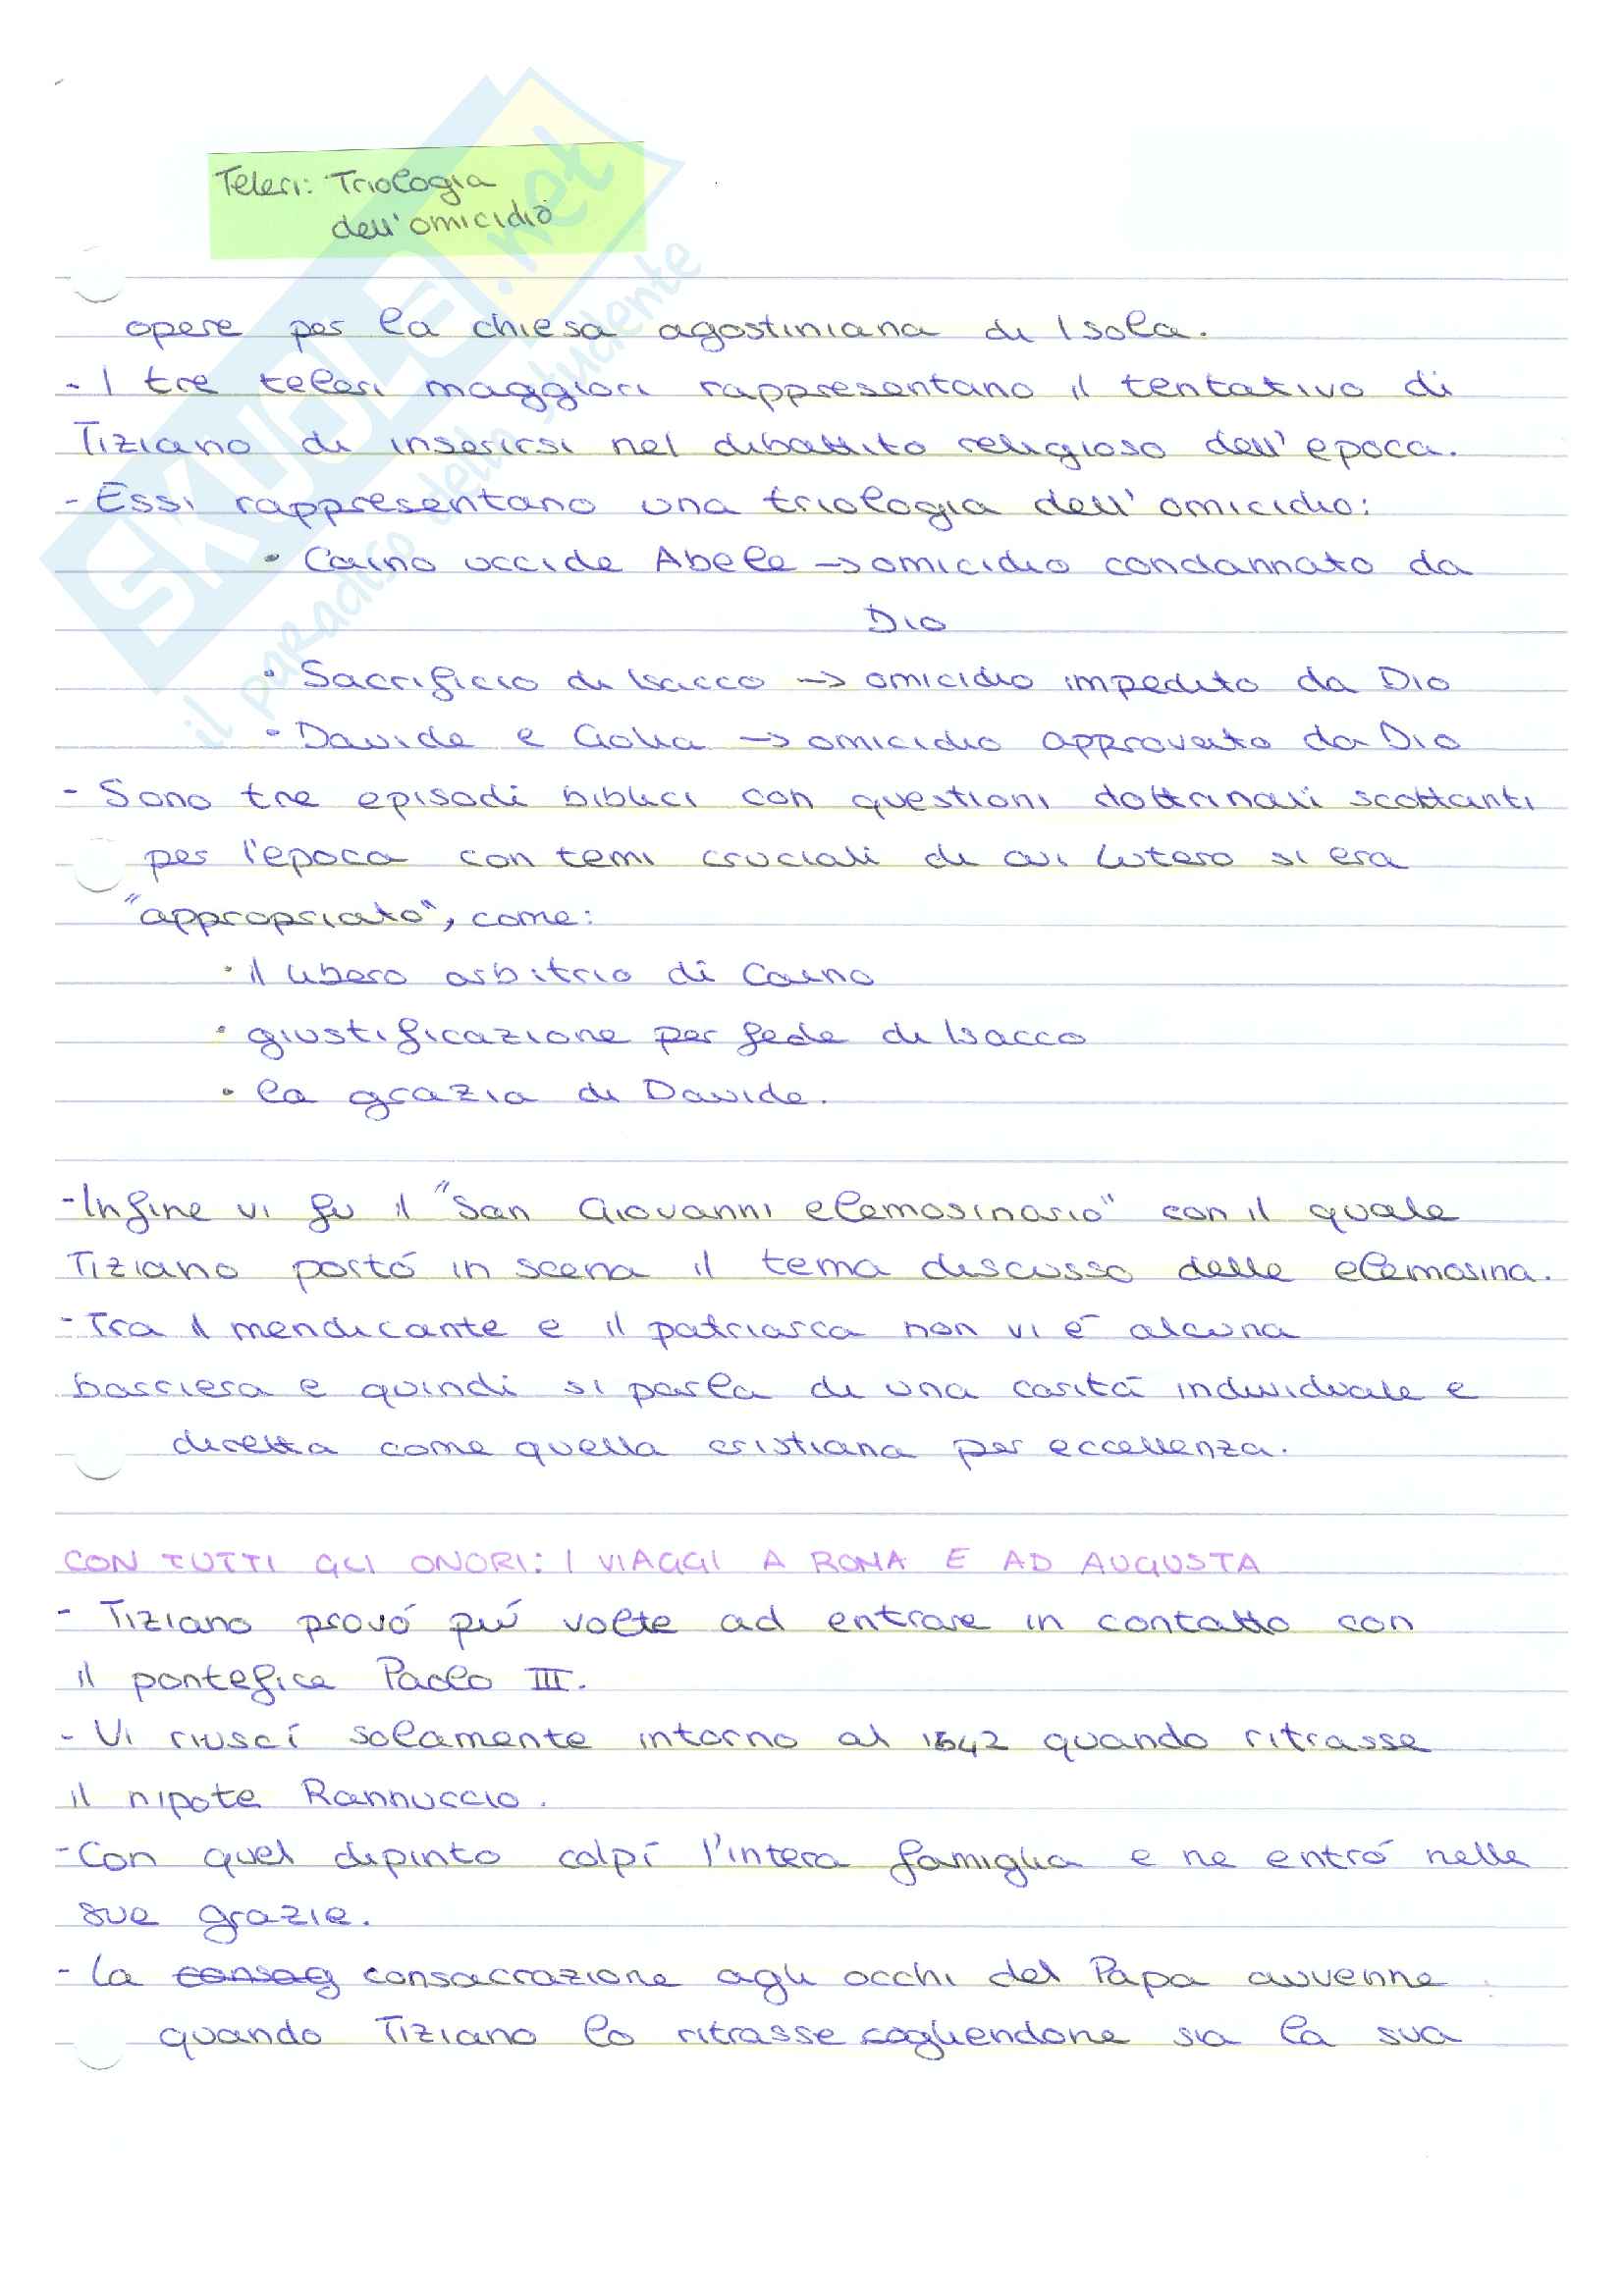 Teleri: Triologia
dell'omicidio
SKUOLA.net
il paradiso dello studente
opere per la chiesa agostiniana di Isola.
- I tre teleri maggiori rappresentano il tentativo di
Tiziano di inserirsi nel dibattito religioso dell'epoca.
- Essi rappresentano una triologia dell'omicidio:
• Caino uccide Abele → omicidio condannato da
Dio
• Sacrificio di Isacco → omicidio impedito da Dio
• Davide e Golia → omicidio approvato da Dio
- Sono tre episodi biblici con questioni dottrinali scottanti
per l'epoca con temi cruciali di cui Lutero si era
"appropriato", come:
• il libero arbitrio di Caino
• giustificazione per fede di Isacco
• la grazia di Davide.
- Infine vi fu il "San Giovanni elemosinario" con il quale
Tiziano portó in scena il tema discusso delle elemosina.
- Tra il mendicante e il patriarca non vi é alcuna
barriera e quindi si parla di una caritá individuale e
diretta come quella cristiana per eccellenza.
CON TUTTI GLI ONORI: I VIAGGI A ROMA E AD AUGUSTA
- Tiziano provó piú volte ad entrare in contatto con
il pontefice Paolo III.
- Vi riuscí solamente intorno al 1542 quando ritrasse
il nipote Rannuccio.
- Con quel dipinto colpí l'intera famiglia e ne entró nelle
sue grazie.
- La consag consacrazione agli occhi del Papa avvenne
quando Tiziano lo ritrasse cogliendone sia la sua